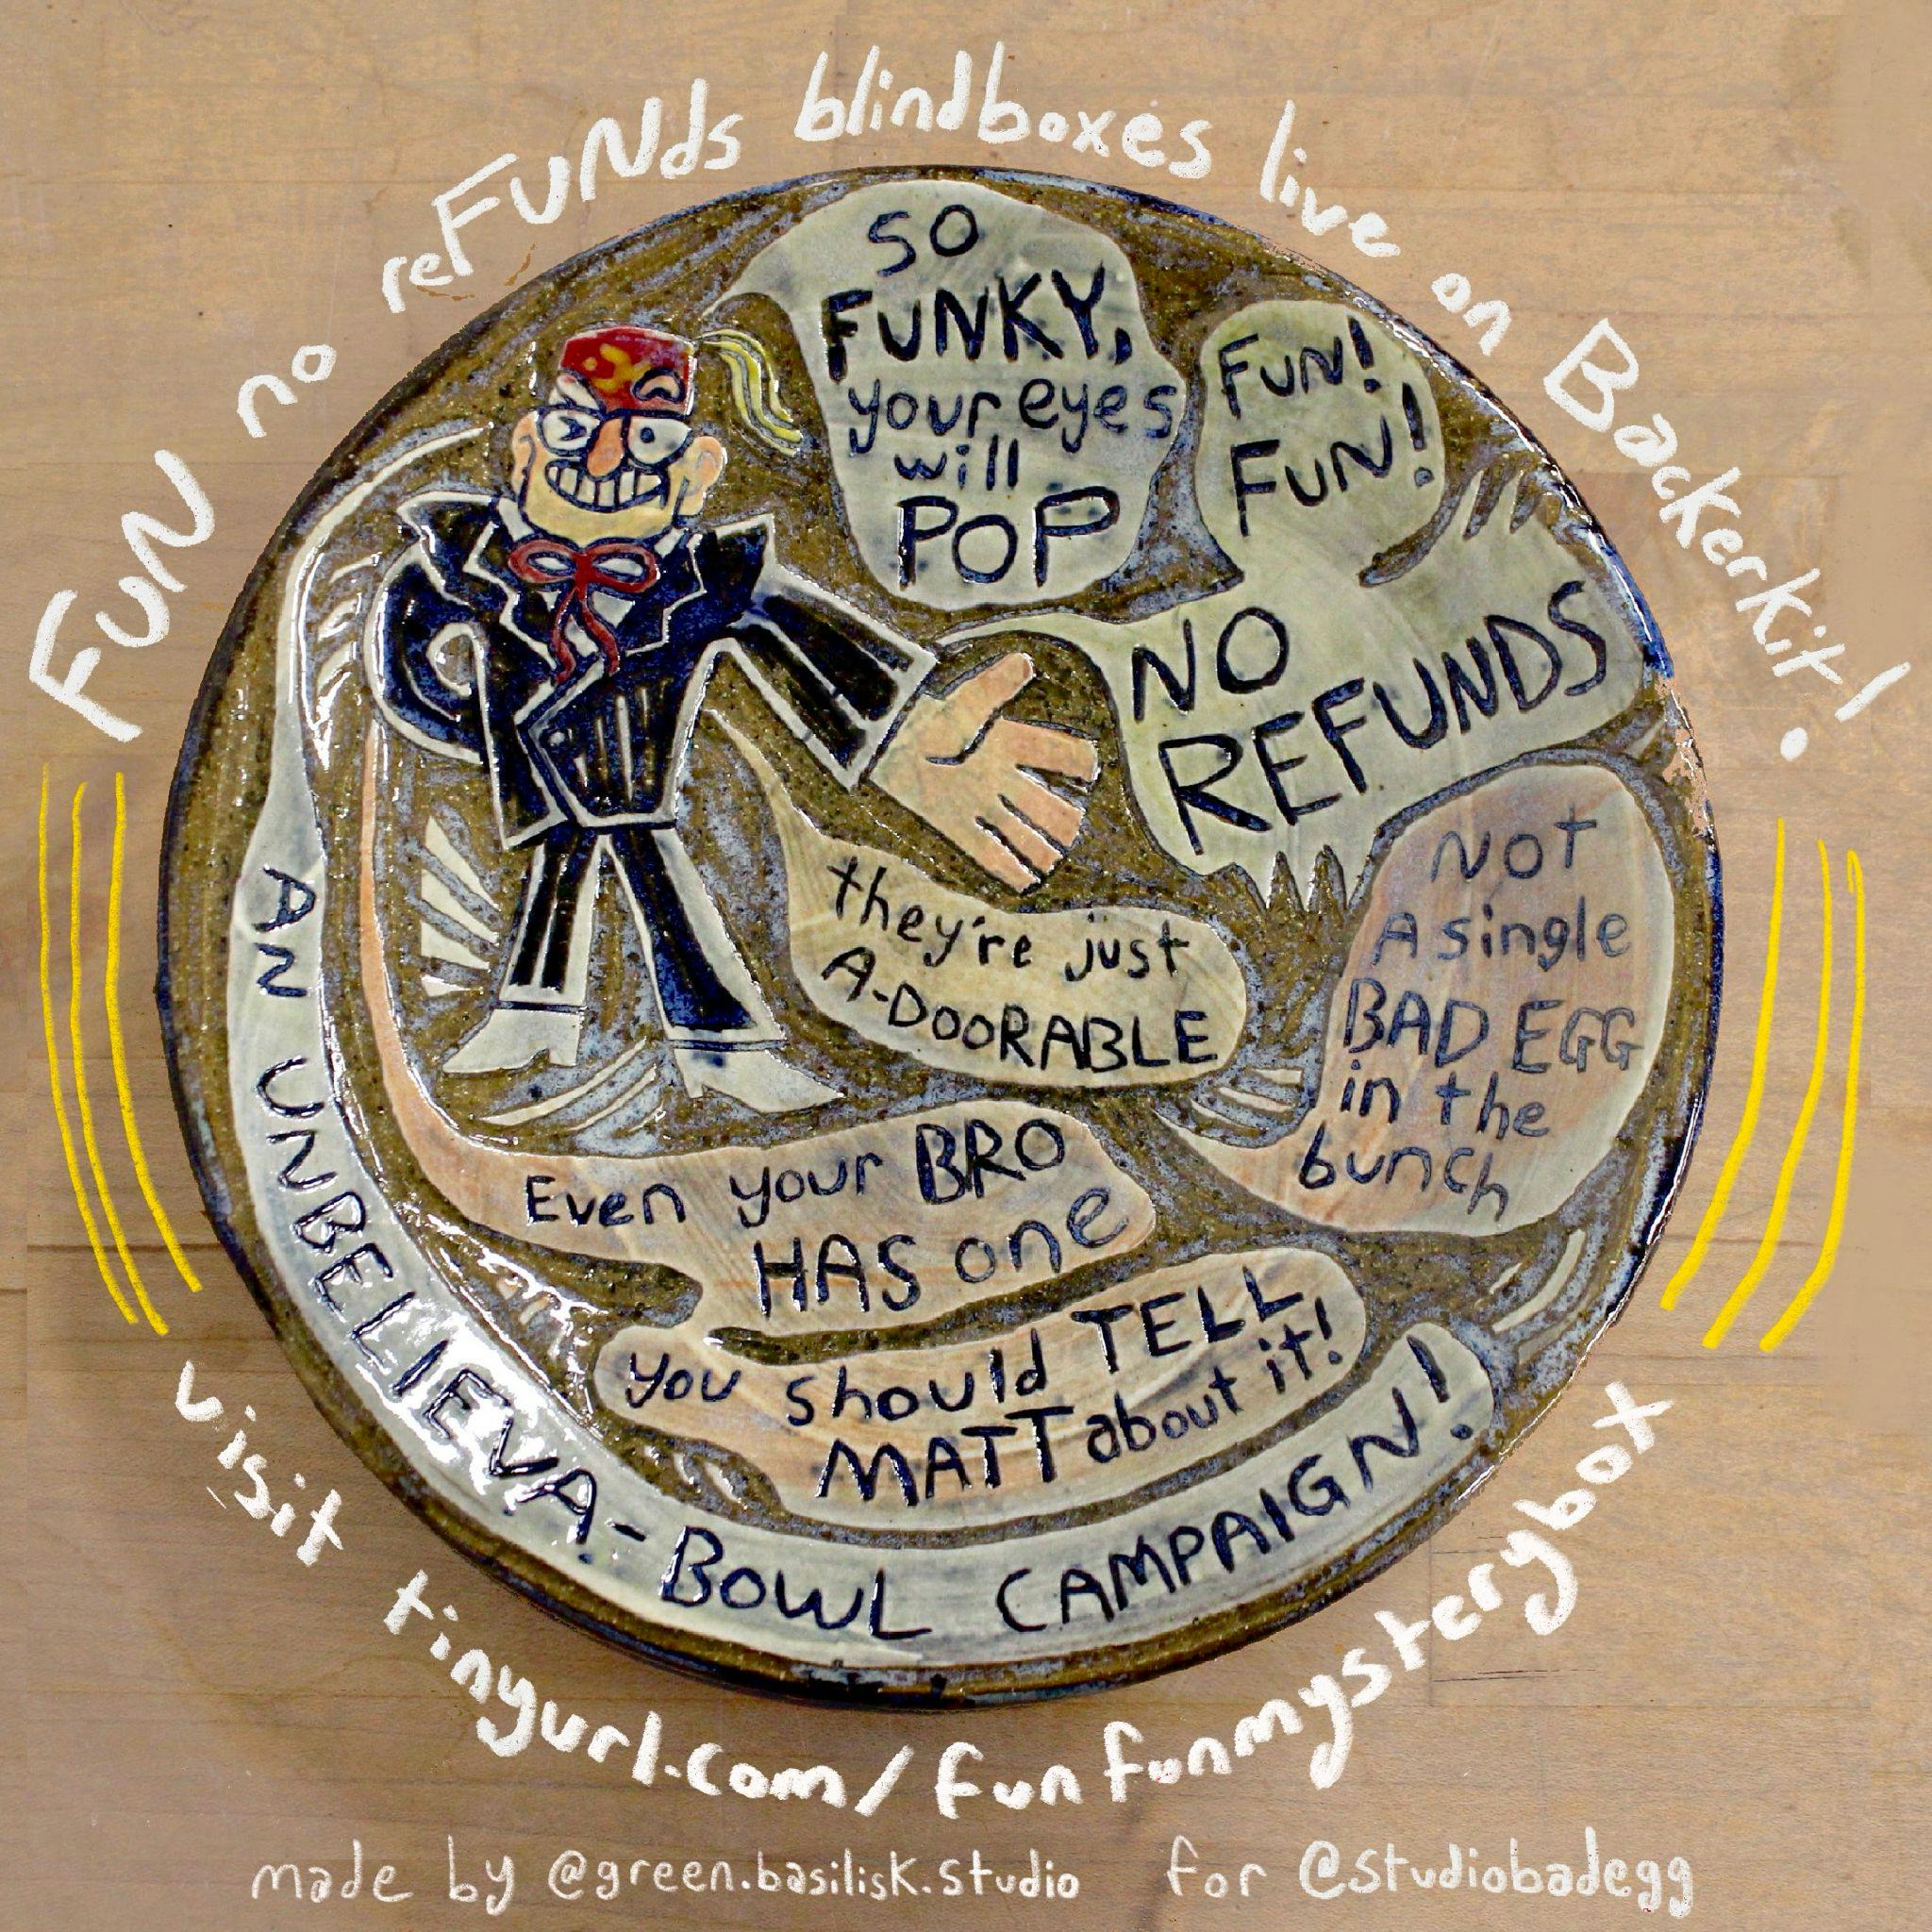 FUN no reFUNds blindboxes live on BackerKit!
SO
FUNKY,
your eyes
will
POP
FUN!
FUN!
NO
REFUNDS
they're just
A-DOORABLE
NOT
A single
BAD EGG
in the
bunch
Even your BRO
HAS one
you should TELL
MATT about it!
AN UNBELIEVA-BOWL CAMPAIGN!
visit tinyurl.com/funfunmysterybox
made by @green.basilisk.studio for @studiobadegg